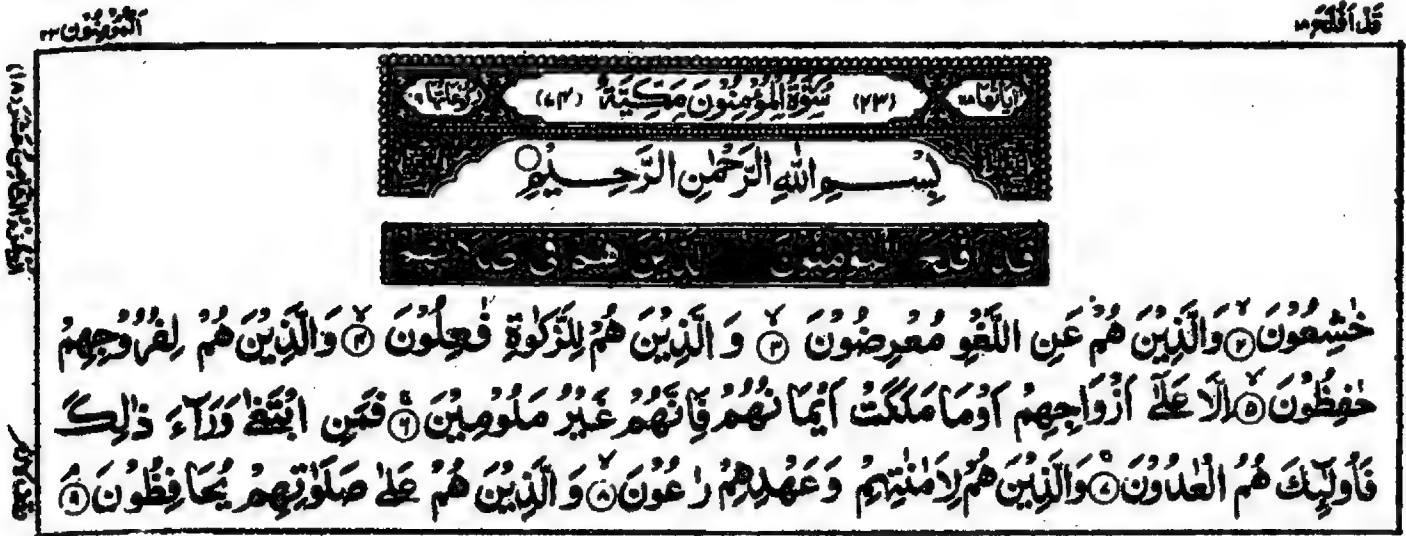 قَدْ اَفْلَحَ ١٨
اَلْمُؤْمِنُوْن ٢٣
اٰيَاتُهَا ١١٨ (٢٣) سُوْرَةُ الْمُؤْمِنُوْنَ مَكِّيَّةٌ (٧٤) رُكُوْعَاتُهَا ٦
بِسْــــمِ اللّٰهِ الرَّحْمٰنِ الرَّحِــــيْمِ ○
قَدْ اَفْلَحَ الْمُؤْمِنُوْنَ الَّذِيْنَ هُمْ فِيْ صَلَاتِهِمْ
خٰشِعُوْنَ ۙ﴿۲﴾ وَالَّذِيْنَ هُمْ عَنِ اللَّغْوِ مُعْرِضُوْنَ ۙ﴿۳﴾ وَ الَّذِيْنَ هُمْ لِلزَّكٰوةِ فٰعِلُوْنَ ۙ﴿۴﴾ وَالَّذِيْنَ هُمْ لِفُرُوْجِهِمْ
حٰفِظُوْنَ ۙ﴿۵﴾ اِلَّا عَلٰٓى اَزْوَاجِهِمْ اَوْمَا مَلَكَتْ اَيْمَانُهُمْ فَاِنَّهُمْ غَيْرُ مَلُوْمِيْنَ ۚ﴿۶﴾ فَمَنِ ابْتَغٰى وَرَآءَ ذٰلِكَ
فَاُولٰٓئِكَ هُمُ الْعٰدُوْنَ ۚ﴿۷﴾ وَالَّذِيْنَ هُمْ لِاَمٰنٰتِهِمْ وَعَهْدِهِمْ رٰعُوْنَ ۙ﴿۸﴾ وَ الَّذِيْنَ هُمْ عَلٰى صَلَوٰتِهِمْ يُحَافِظُوْنَ ۘ﴿۹﴾